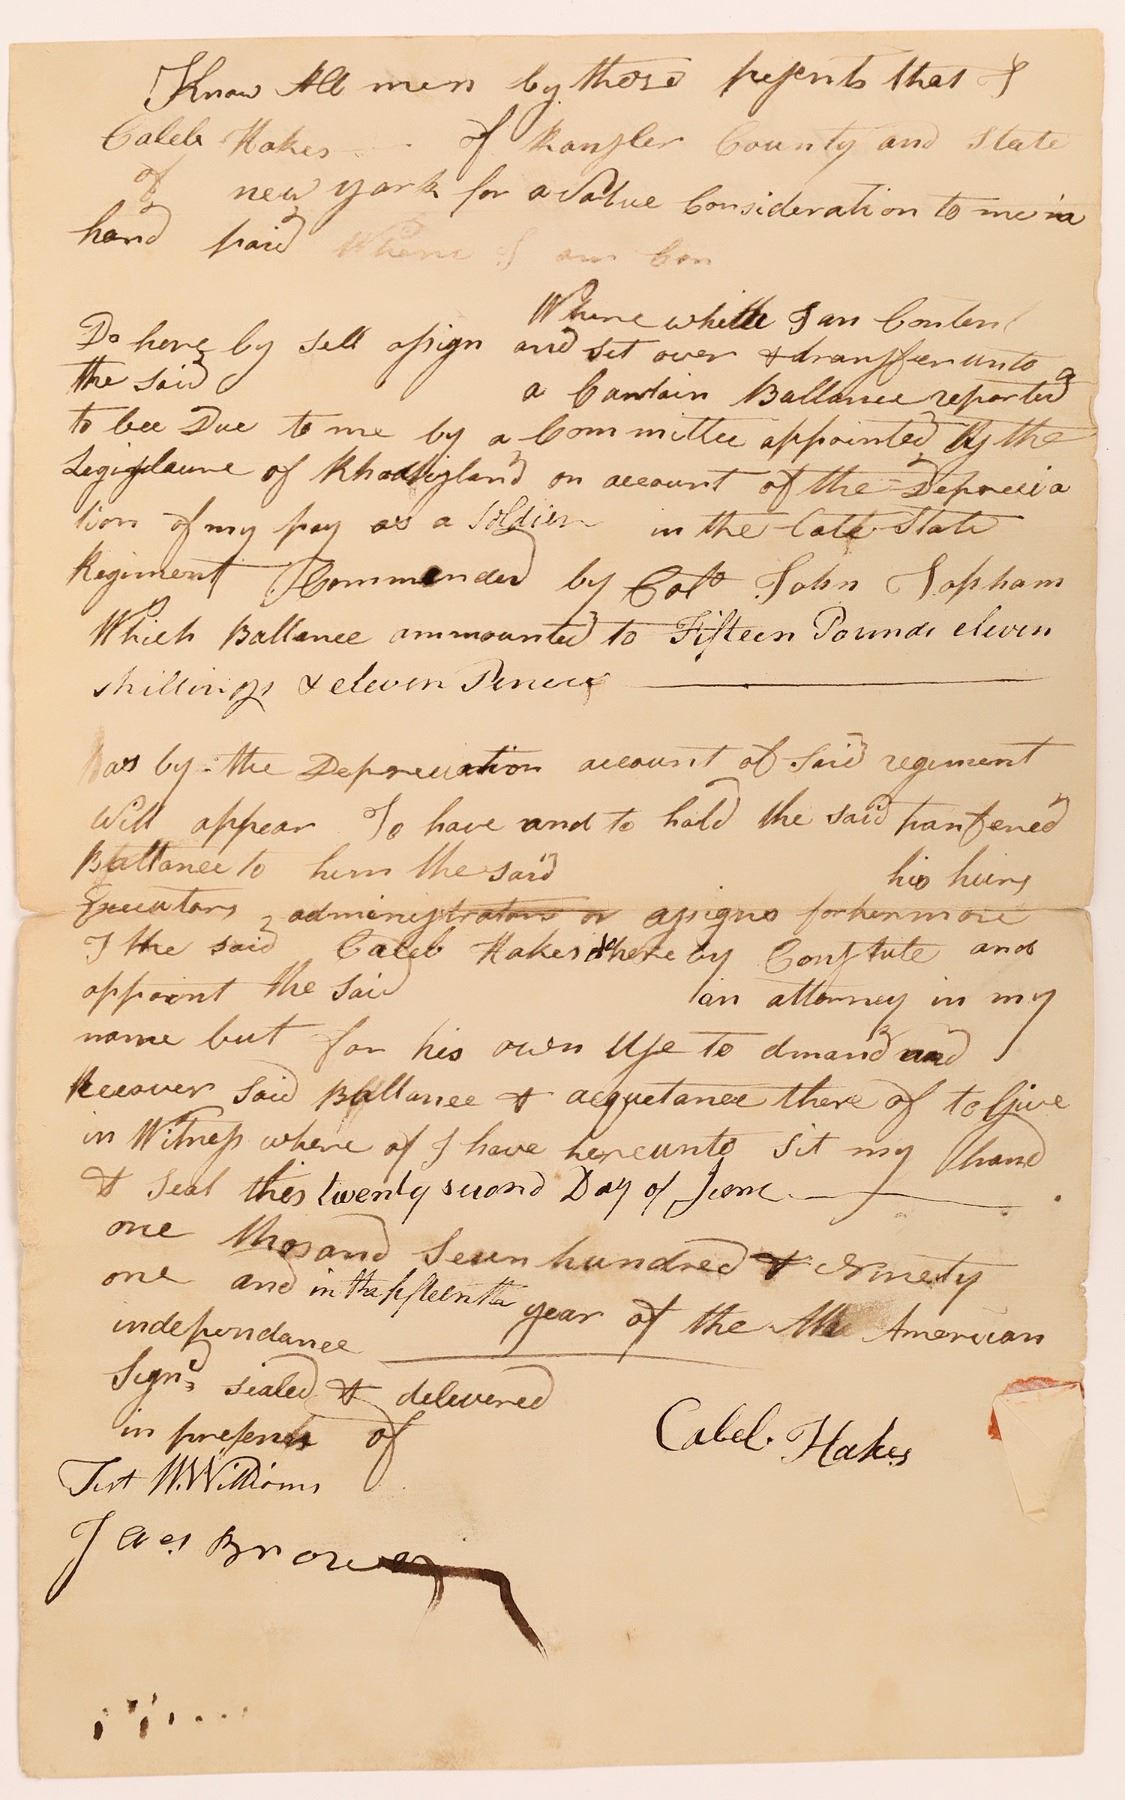 Know All men by these pesents that I
Caleb Hakes of Ransler County and State
of new york for a Value Consideration to me in
hand paid Where I am Con
Where white I am Conten
Do here by sell assign and set over & transfer unto
the said a Cartain Ballance reported
to bee Due to me by a Committee appointed By the
Legislaure of Rhodisland on account of the Deprecia
tion of my pay as a Soldier in the late State
Regiment Commended by Colo John Topham
Which Ballance ammounted to Fifteen Pounds eleven
shillings & eleven Pence
has by the Depreciation account of said regiment
Will appear To have and to hold the said tranfered
Ballance to him the said his heirs
Executors administrators or assigns forhermore
I the said Caleb Hakes do here by Constute and
appoint the said an attorney in my
name but for his own Use to dmand and
Recover said Ballance & acquetance there of to Give
in Witness where of I have hereunto sit my hand
& seal this twenty second Day of June
one thosand seven hundred & Ninety
one and in the fifteenth year of the American
independance
Signd sealed & delivered
in presents of
Caleb Hakes
Test W. Williams
Brown